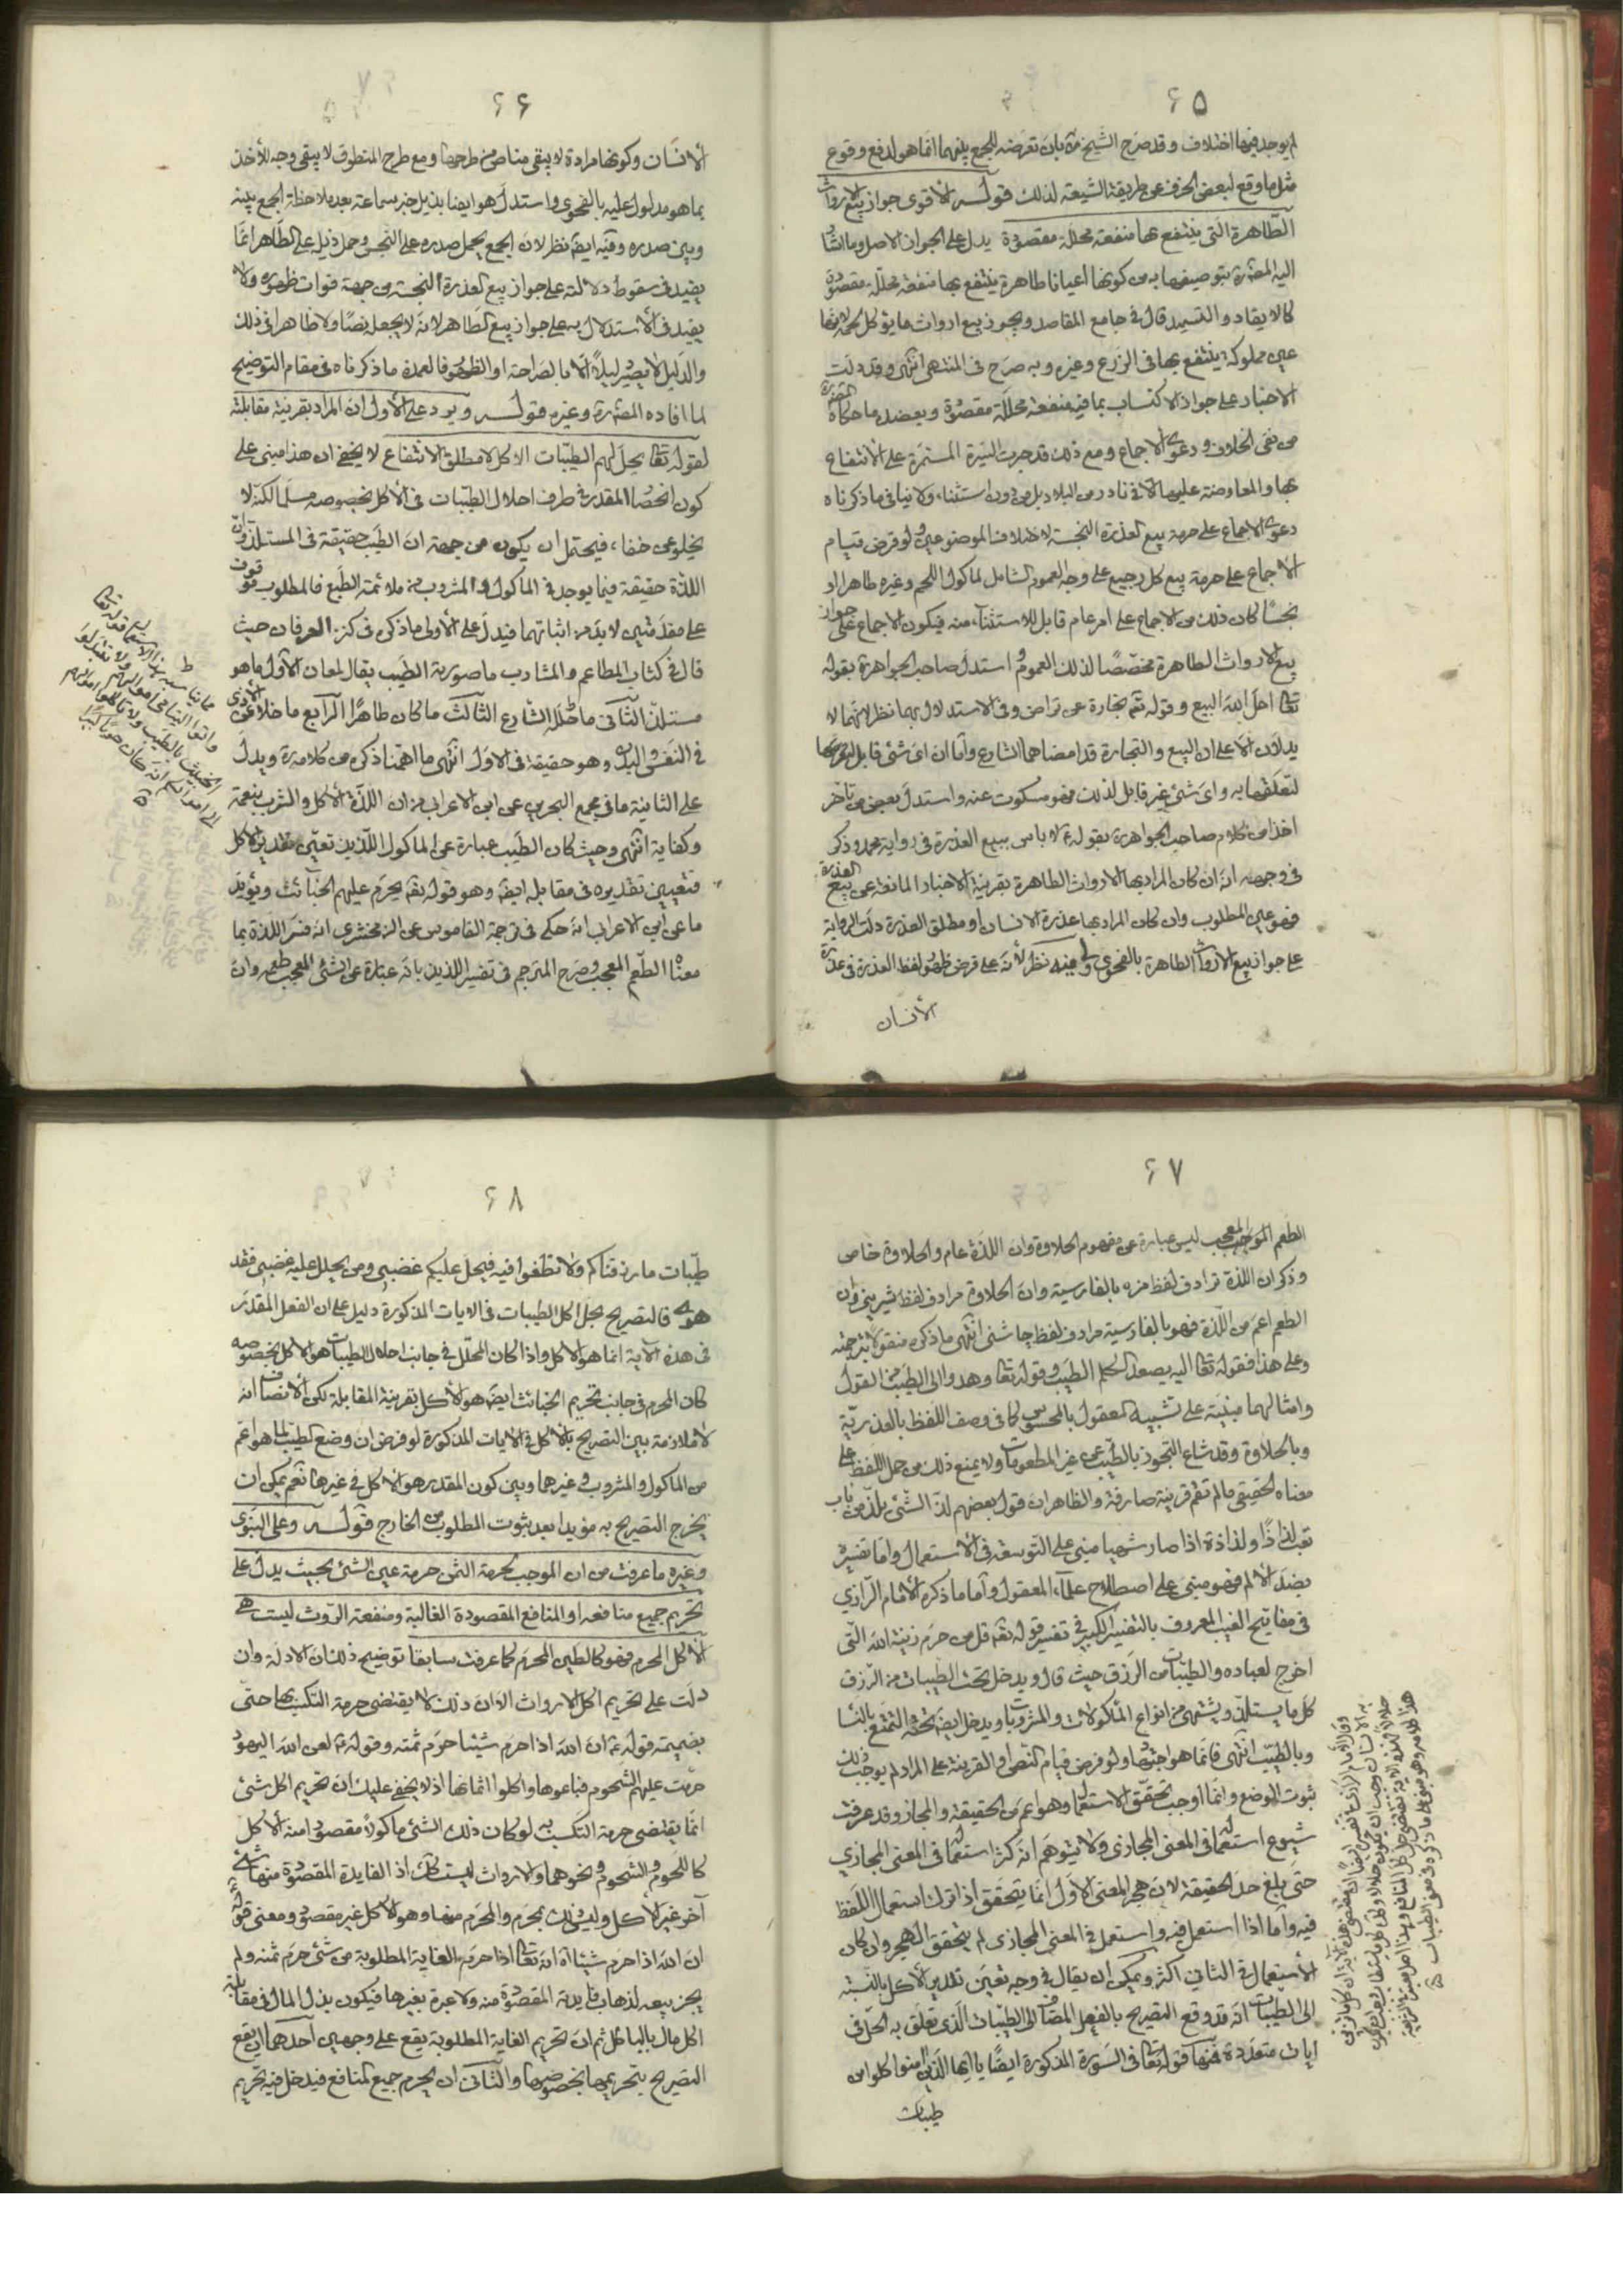 ۶۵
لم يوجد فيها اختلاف وقد صرح الشيخ ره بان تعرضه للجمع بينهما انما هو لدفع وقوع
مثل ما وقع لبعض الحرف عن طريقة الشيعة لذلك قوله الاقوى جواز بيع الارواث
الطاهرة التي ينتفع بها منفعة محللة مقصودة يدل على الجواز الاصل وما اشار
اليه المص ره بتوصيفها به من كونها اعيانا طاهرة ينتفع بها منفعة محللة مقصودة
كالايقاد والتسميد قال في جامع المقاصد ويجوز بيع ارواث ما يؤكل لحمه لانها
عين مملوكة ينتفع بها في الزرع وغيره وبه صرح في المنتهى انتهى وقد دلت
الاخبار على جواز الاكتساب بما فيه منفعة محللة مقصودة ويعضده ما حكاه المص ره
من نفى الخلاف ودعوى الاجماع ومع ذلك قد جرت السيرة المستمرة على الانتفاع
بها والمعاوضة عليها الا في نادر من البلاد بل من دون استثناء ولا ينافي ما ذكرناه
دعوى الاجماع على حرمة بيع العذرة النجسة لاختلاف الموضوعين ولو فرض قيام
الاجماع على حرمة بيع كل رجيع على وجه العموم الشامل لماكول اللحم وغيره طاهرا او
نجسا كان ذلك من الاجماع على امر عام قابل للاستثناء منه فيكون الاجماع على جواز
بيع الارواث الطاهرة مخصصا لذلك العموم واستدل صاحب الجواهر ره بقوله
تعا احل الله البيع وقوله تع تجارة عن تراض وفي الاستدلال بهما نظر لانهما لا
يدلان الا على ان البيع والتجارة قد امضاهما الشارع واما ان اى شئ قابل
لتعلقهما به واى شئ غير قابل لذلك فهو مسكوت عنه واستدل بعض من تاخر
اخذا من كلام صاحب الجواهر ره بقوله ع لا باس ببيع العذرة في رواية محمد وذكر
في وجهه انه ان كان المراد بها الارواث الطاهرة بقرينة الاخبار المانعة عن بيع العذرة
فهو عين المطلوب وان كان المراد بها عذرة الانسان او مطلق العذرة دلت الرواية
على جواز بيع الارواث الطاهرة بالفحوى وفيه نظر لانه على فرض ظهور لفظ العذرة في عذرة
الانسان
۶۶
الانسان وكونها مرادة لا يبقى مناص من طرحها ومع طرح المنطوق لا يبقى وجه للاخذ
بما هو مدلول عليه بالفحوى واستدل هو ايضا بذيل خبر سماعة بعد ملاحظة الجمع بينه
وبين صدره وفيه ايض نظر لان الجمع بحمل صدره على النجس وحمل ذيله على الطاهر انما
يفيد في سقوط دلالته على جواز بيع العذرة النجسة من جهة فوات ظهوره ولا
يفيد في الاستدلال به على جواز بيع الطاهر لانه لا يجعله نصا ولا ظاهرا في ذلك
والدليل لا يصير دليلا الا بالصراحة او الظهور فالعمدة ما ذكرناه في مقام التوضيح
لما افاده المص ره وغيره قوله ويرد على الاول ان المراد بقرينة مقابلته
لقوله تعا يحل لهم الطيبات الاكل لا مطلق الانتفاع لا يخفى ان هذا مبنى على
كون انحصار المقدر في طرف احلال الطيبات في الاكل بخصوصه مسلما لكنه لا
يخلو عن خفاء فيحتمل ان يكون من جهة ان الطيب حقيقة في المستلذ وان
اللذة حقيقة فيما يوجد في الماكول والمشروب من ملائمة الطبع فالمطلوب موقوف
على مقدمتين لا بد من اثباتهما فيدل على الاولى ما ذكره في كنز العرفان حيث
قال في كتاب المطاعم والمشارب ما صورته الطيب يقال لمعان الاول ما هو
مستلذ الثاني ما حلله الشارع الثالث ما كان طاهرا الرابع ما خلا عن الاذى
في النفس والبدن وهو حقيقة في الاول انتهى ما اهمنا ذكره من كلامه ره ويدل
على الثانية ما في مجمع البحرين عن ابن الاعرابي من ان اللذة الاكل والشرب بنعمة
وكفاية انتهى وحيث كان الطيب عبارة عن الماكول اللذيذ تعين تقدير الاكل
فتعيين تقديره في مقابله ايض وهو قوله تع يحرم عليهم الخبائث ويؤيد
ما عن ابن الاعرابي انه حكى في ترجمة القاموس عن الزمخشرى انه فسر اللذة بما
معناه الطعم المعجب وصرح المترجم في تفسير اللذيذ بانه عبارة عن الشئ المعجب طعمه وان
قوله تعا
واتوا اليتامى اموالهم ولا تتبدلوا
الخبيث بالطيب ولا تاكلوا اموالهم
الى اموالكم انه كان حوبا كبيرا
۶۷
الطعم المعجب ليس عبارة عن مفهوم الحلاوة وان اللذة عام والحلاوة خاص
وذكر ان اللذة ترادف لفظ مزه بالفارسية وان الحلاوة مرادف لفظ شيريني وان
الطعم اعم من اللذة فهو بالفارسية مرادف لفظ چاشنى انتهى ما ذكره منقولا بترجمته
وعلى هذا فقوله تعا اليه يصعد الكلم الطيب وقوله تعا وهدوا الى الطيب من القول
وامثالهما مبنية على تشبيه المعقول بالمحسوس كما في وصف اللفظ بالعذرية
وبالحلاوة وقد شاع التجوز بالطيب عن غير المطعومات ولا يمنع ذلك من حمل اللفظ على
معناه الحقيقي ما لم تقم قرينة صارفة والظاهر ان قول بعضهم لذ الشئ يلذ من باب
تعب لذاذا ولذاذة اذا صار شهيا مبنى على التوسعة في الاستعمال واما تفسيره
بضد الالم فهو مبنى على اصطلاح علماء المعقول واما ما ذكره الامام الرازي
في مفاتيح الغيب المعروف بالتفسير الكبير في تفسير قوله تع قل من حرم زينة الله التي
اخرج لعباده والطيبات من الرزق حيث قال ويدخل تحت الطيبات من الرزق
كل ما يستلذ ويشتهى من انواع الماكولات والمشروبات ويدخل ايض تحته التمتع بالنساء
وبالطيب انتهى فانما هو اجتهاد ولو فرض قيام النص او القرينة على المراد لم يوجب ذلك
ثبوت الوضع وانما اوجب تحقق الاستعمال وهو اعم من الحقيقة والمجاز وقد عرفت
شيوع استعماله في المعنى المجازى ولا يتوهم انه كثر استعماله في المعنى المجازي
حتى بلغ حد الحقيقة لان هجر المعنى الاول انما يتحقق اذا ترك استعمال اللفظ
فيه واما اذا استعمل فيه واستعمل في المعنى المجازى لم يتحقق الهجر وان كان
الاستعمال في الثاني اكثر ويمكن ان يقال في وجه تعين تقدير الاكل بالنسبة
الى الطيبات انه قد وقع التصريح بالفعل المضاف الى الطيبات الذى تعلق به الحل في
ايات متعددة فمنها قوله تعا في السورة المذكورة ايضا يا ايها الذين امنوا كلوا من
طيبات
۶۸
طيبات ما رزقناكم ولا تطغوا فيه فيحل عليكم غضبي ومن يحلل عليه غضبى فقد
هوى فالتصريح بحل اكل الطيبات في الايات المذكورة دليل على ان الفعل المقدر
في هذه الاية انما هو الاكل واذا كان المحلل في جانب احلال الطيبات هو الاكل بخصوصه
كان المحرم في جانب تحريم الخبائث ايض هو الاكل بقرينة المقابلة لكن الانصاف انه
لا ملازمة بين التصريح بالاكل في الايات المذكورة لو فرض ان وضع الطيب لما هو اعم
من الماكول والمشروب وغيرهما وبين كون المقدر هو الاكل في غيرها نعم يمكن ان
يخرج التصريح به مؤيدا بعد ثبوت المطلوب من الخارج قوله وعلى النبوى
وغيره ما عرفت من ان الموجب لحرمة الثمن حرمة عين الشئ بحيث يدل على
تحريم جميع منافعه او المنافع المقصودة الغالبة ومنفعة الروث ليست هى
الاكل المحرم فهو كالطين المحرم كما عرفت سابقا توضيح ذلك ان الادلة وان
دلت على تحريم اكل الارواث الا ان ذلك لا يقتضى حرمة التكسب بها حتى
بضميمة قوله ع ان الله اذا حرم شيئا حرم ثمنه وقوله ع لعن الله اليهود
حرمت عليهم الشحوم فباعوها واكلوا اثمانها اذ لا يخفى عليك ان تحريم اكل شئ
انما يقتضى حرمة التكسب به لو كان ذلك الشئ ماكولا مقصودا منه الاكل
كاللحوم والشحوم ونحوهما والارواث ليست كك اذ الفايدة المقصودة منها شئ
آخر غير الاكل وليس ذلك بمحرم والمحرم منها وهو الاكل غير مقصود ومعنى قوله
ان الله اذا حرم شيئا آه انه تعا اذا حرم الغاية المطلوبة من شئ حرم ثمنه ولم
يجز بيعه لذهاب فايدته المقصودة منه ولا عبرة بغيرها فيكون بذل المال في مقابلته
اكل مال بالباطل ثم ان تحريم الغاية المطلوبة يقع على وجهين احدهما ان يقع
التصريح بتحريمها بخصوصها والثاني ان يحرم جميع المنافع فيدخل فيه تحريم